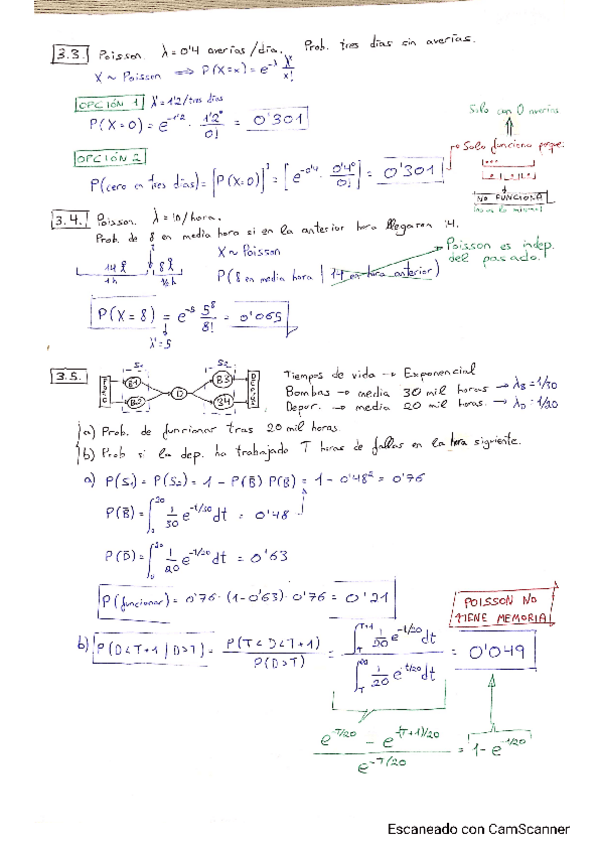 3.3. Poisson. λ = 0'4 averías/día. Prob. tres días sin averías.
X ~ Poisson ⟹ P(X=x) = e^-λ λ^x/x!
OPCIÓN 1 λ' = 1'2/tres días
P(X=0) = e^-1'2 · 1'2^0/0! = 0'301
Solo con 0 averías
OPCIÓN 2
Solo funciona
P(cero en tres días) = [P(X=0)]^3 = [e^-0'4 · 0'4^0/0!]^3 = 0'301
NO FUNCIONA
3.4. Poisson. λ = 10/hora.
Prob. de 8 en media hora si en la anterior hora llegaron 14.
X ~ Poisson
Poisson es indep. del pasado.
14 8
1h ½h
P(8 en media hora | 14 en hora anterior)
P(X=8) = e^-5 5^8/8! = 0'065
λ'=5
3.5.
S1 S2
B1 B2 D B3 B4
Tiempos de vida → Exponencial
Bombas → media 30 mil horas → λB = 1/30
Depur. → media 20 mil horas. → λD = 1/20
a) Prob. de funcionar tras 20 mil horas.
b) Prob si la dep. ha trabajado T horas de fallas en la hora siguiente.
a) P(S1) = P(S2) = 1 - P(B̄) P(B̄) = 1 - 0'48² = 0'76
P(B̄) = ∫ 20 1/30 e^-t/30 dt = 0'48
P(D̄) = ∫ 20 1/20 e^-t/20 dt = 0'63
P(funcionar) = 0'76 · (1-0'63) · 0'76 = 0'21
POISSON NO
TIENE MEMORIA
b) P(D<T+1 | D>T) = P(T<D<T+1)/P(D>T) = ∫ T T+1 1/20 e^-t/20 dt / ∫ T 1/20 e^-t/20 dt = 0'049
e^-T/20 - e^-(T+1)/20 / e^-T/20 = 1 - e^-1/20
Escaneado con CamScanner